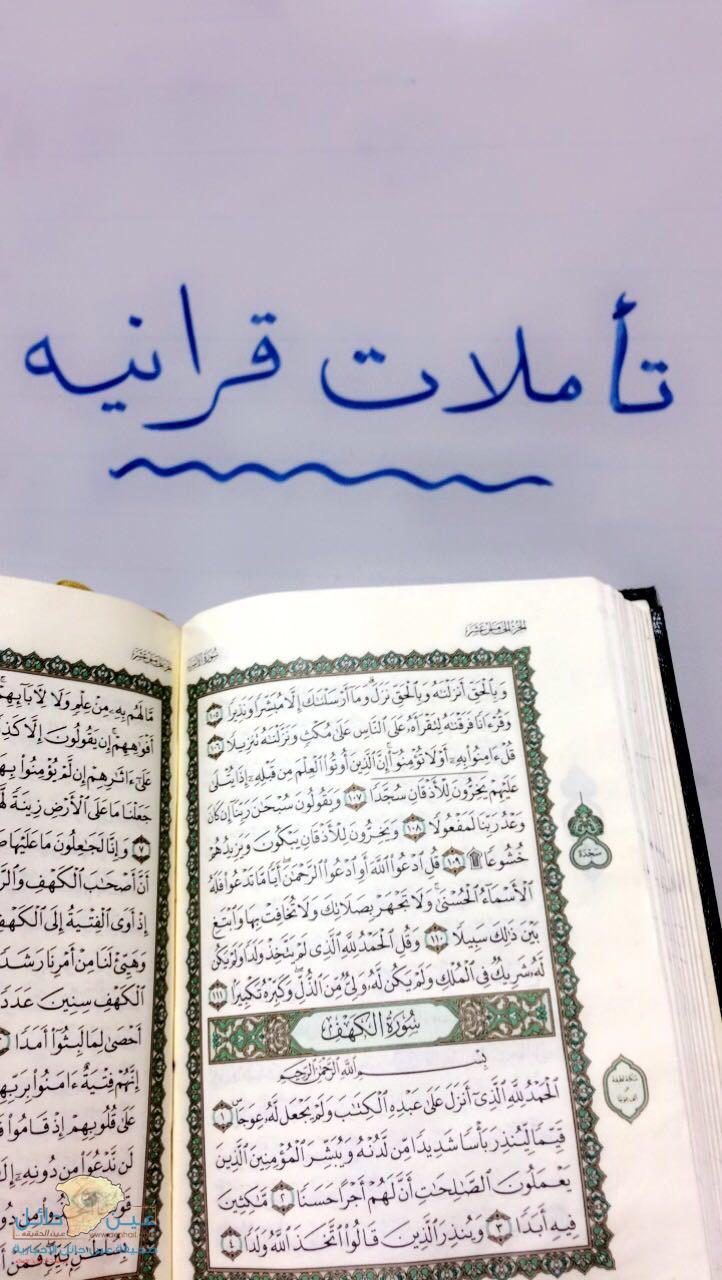 تأملات قرانيه
سورة الإسراء
الجزء الخامس عشر
وَبِالْحَقِّ أَنزَلْنَاهُ وَبِالْحَقِّ نَزَلَ وَمَا أَرْسَلْنَاكَ إِلَّا مُبَشِّرًا وَنَذِيرًا ١٠٥
وَقُرْءَانًا فَرَقْنَاهُ لِتَقْرَأَهُ عَلَى النَّاسِ عَلَى مُكْثٍ وَنَزَّلْنَاهُ تَنزِيلًا ١٠٦
قُلْ ءَامِنُوا بِهِ أَوْ لَا تُؤْمِنُوا إِنَّ الَّذِينَ أُوتُوا الْعِلْمَ مِن قَبْلِهِ إِذَا يُتْلَى
عَلَيْهِمْ يَخِرُّونَ لِلْأَذْقَانِ سُجَّدًا ١٠٧ وَيَقُولُونَ سُبْحَانَ رَبِّنَا إِن كَانَ
وَعْدُ رَبِّنَا لَمَفْعُولًا ١٠٨ وَيَخِرُّونَ لِلْأَذْقَانِ يَبْكُونَ وَيَزِيدُهُمْ
خُشُوعًا ۩ ١٠٩ قُلِ ادْعُوا اللَّهَ أَوِ ادْعُوا الرَّحْمَٰنَ أَيًّا مَّا تَدْعُوا فَلَهُ
الْأَسْمَاءُ الْحُسْنَى وَلَا تَجْهَرْ بِصَلَاتِكَ وَلَا تُخَافِتْ بِهَا وَابْتَغِ
بَيْنَ ذَٰلِكَ سَبِيلًا ١١٠ وَقُلِ الْحَمْدُ لِلَّهِ الَّذِي لَمْ يَتَّخِذْ وَلَدًا وَلَمْ يَكُن
لَّهُ شَرِيكٌ فِي الْمُلْكِ وَلَمْ يَكُن لَّهُ وَلِيٌّ مِّنَ الذُّلِّ وَكَبِّرْهُ تَكْبِيرًا ١١١
سُورَةُ الْكَهْفِ
بِسْمِ اللَّهِ الرَّحْمَٰنِ الرَّحِيمِ
الْحَمْدُ لِلَّهِ الَّذِي أَنزَلَ عَلَى عَبْدِهِ الْكِتَابَ وَلَمْ يَجْعَل لَّهُ عِوَجًا ١
قَيِّمًا لِّيُنذِرَ بَأْسًا شَدِيدًا مِّن لَّدُنْهُ وَيُبَشِّرَ الْمُؤْمِنِينَ الَّذِينَ
يَعْمَلُونَ الصَّالِحَاتِ أَنَّ لَهُمْ أَجْرًا حَسَنًا ٢ مَّاكِثِينَ
فِيهِ أَبَدًا ٣ وَيُنذِرَ الَّذِينَ قَالُوا اتَّخَذَ اللَّهُ وَلَدًا ٤
سجدة
مَّا لَهُم بِهِ مِنْ عِلْمٍ وَلَا لِآبَائِهِمْ
أَفْوَاهِهِمْ إِن يَقُولُونَ إِلَّا
عَلَى ءَاثَارِهِمْ إِن لَّمْ يُؤْمِنُوا
جَعَلْنَا مَا عَلَى الْأَرْضِ زِينَةً
٧ وَإِنَّا لَجَاعِلُونَ مَا عَلَيْهَا
أَنَّ أَصْحَابَ الْكَهْفِ
إِذْ أَوَى الْفِتْيَةُ إِلَى الْكَهْفِ
وَهَيِّئْ لَنَا مِنْ أَمْرِنَا رَشَدًا
الْكَهْفِ سِنِينَ عَدَدًا
أَحْصَى لِمَا لَبِثُوا أَمَدًا
إِنَّهُمْ فِتْيَةٌ ءَامَنُوا بِرَبِّهِمْ
عَلَى قُلُوبِهِمْ إِذْ قَامُوا
لَن نَّدْعُوَا مِن دُونِهِ
عين حائل
عين الحقيقة
صحيفة عين حائل الإخبارية